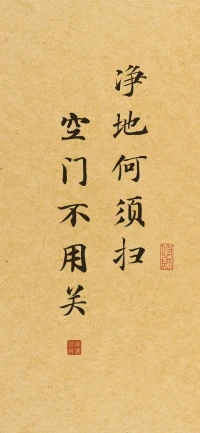 净地何须扫
空门不用关